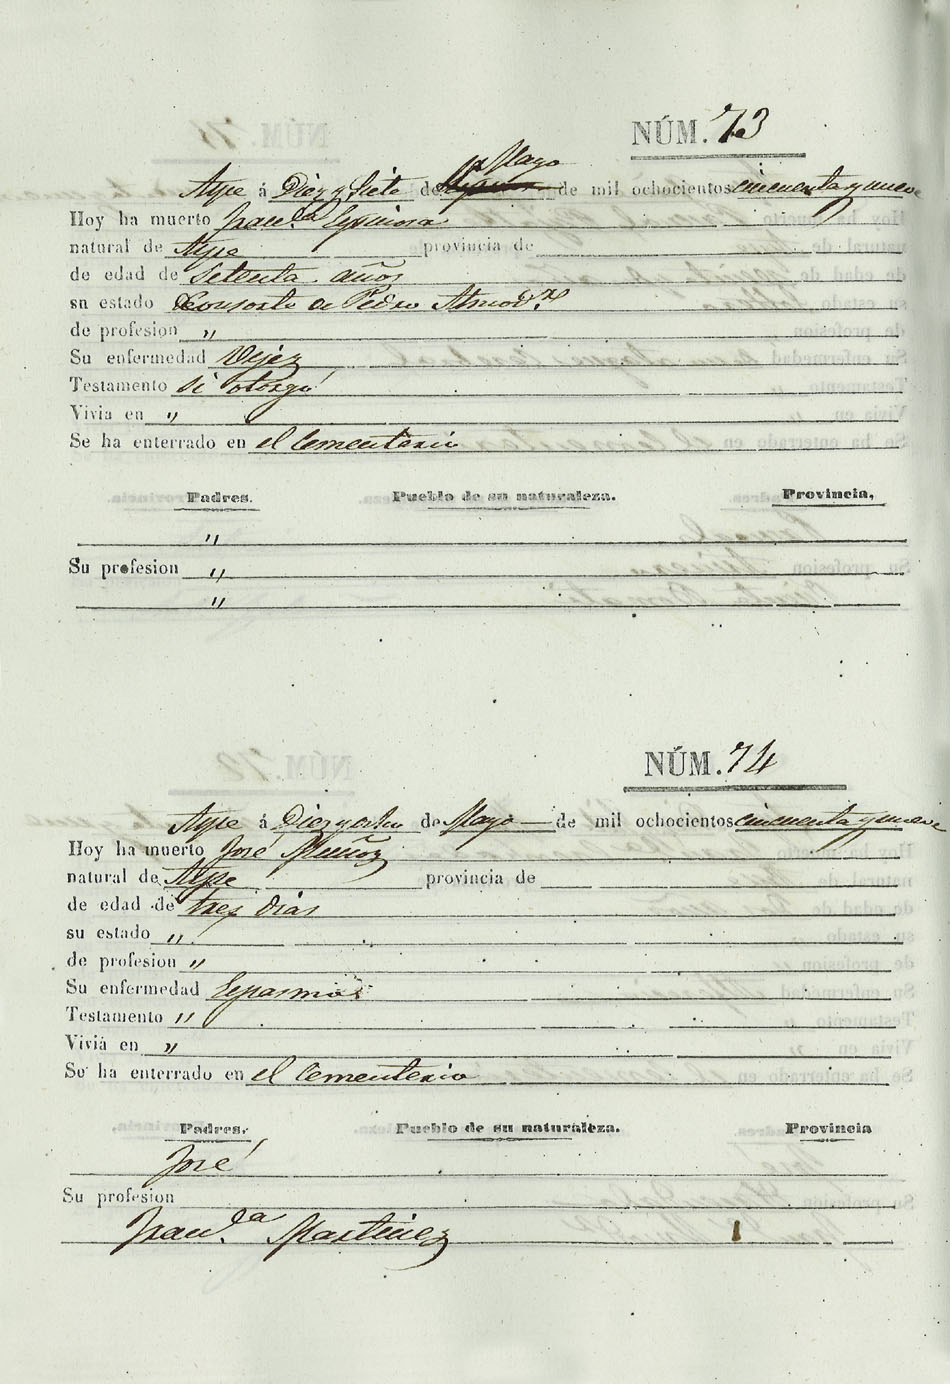 NÚM. 73
Aspe á Diez y siete de Mayo de mil ochocientos cincuenta y nueve
Hoy ha muerto Fran.ca Espinosa
natural de Aspe provincia de
de edad de setenta años
su estado Consorte de Pedro Almod.r
de profesion "
Su enfermedad Vejez
Testamento si otorgó
Vivia en "
Se ha enterrado en el Cementerio
Padres. Pueblo de su naturaleza. Provincia,
"
Su profesion "
"
NÚM. 74
Aspe á Diez y ocho de Mayo de mil ochocientos cincuenta y nueve
Hoy ha muerto José Muñoz
natural de Aspe provincia de
de edad de tres dias
su estado "
de profesion "
Su enfermedad Espasmos
Testamento "
Vivia en "
Se ha enterrado en el Cementerio
Padres. Pueblo de su naturaleza. Provincia
José
Su profesion
Fran.ca Martinez